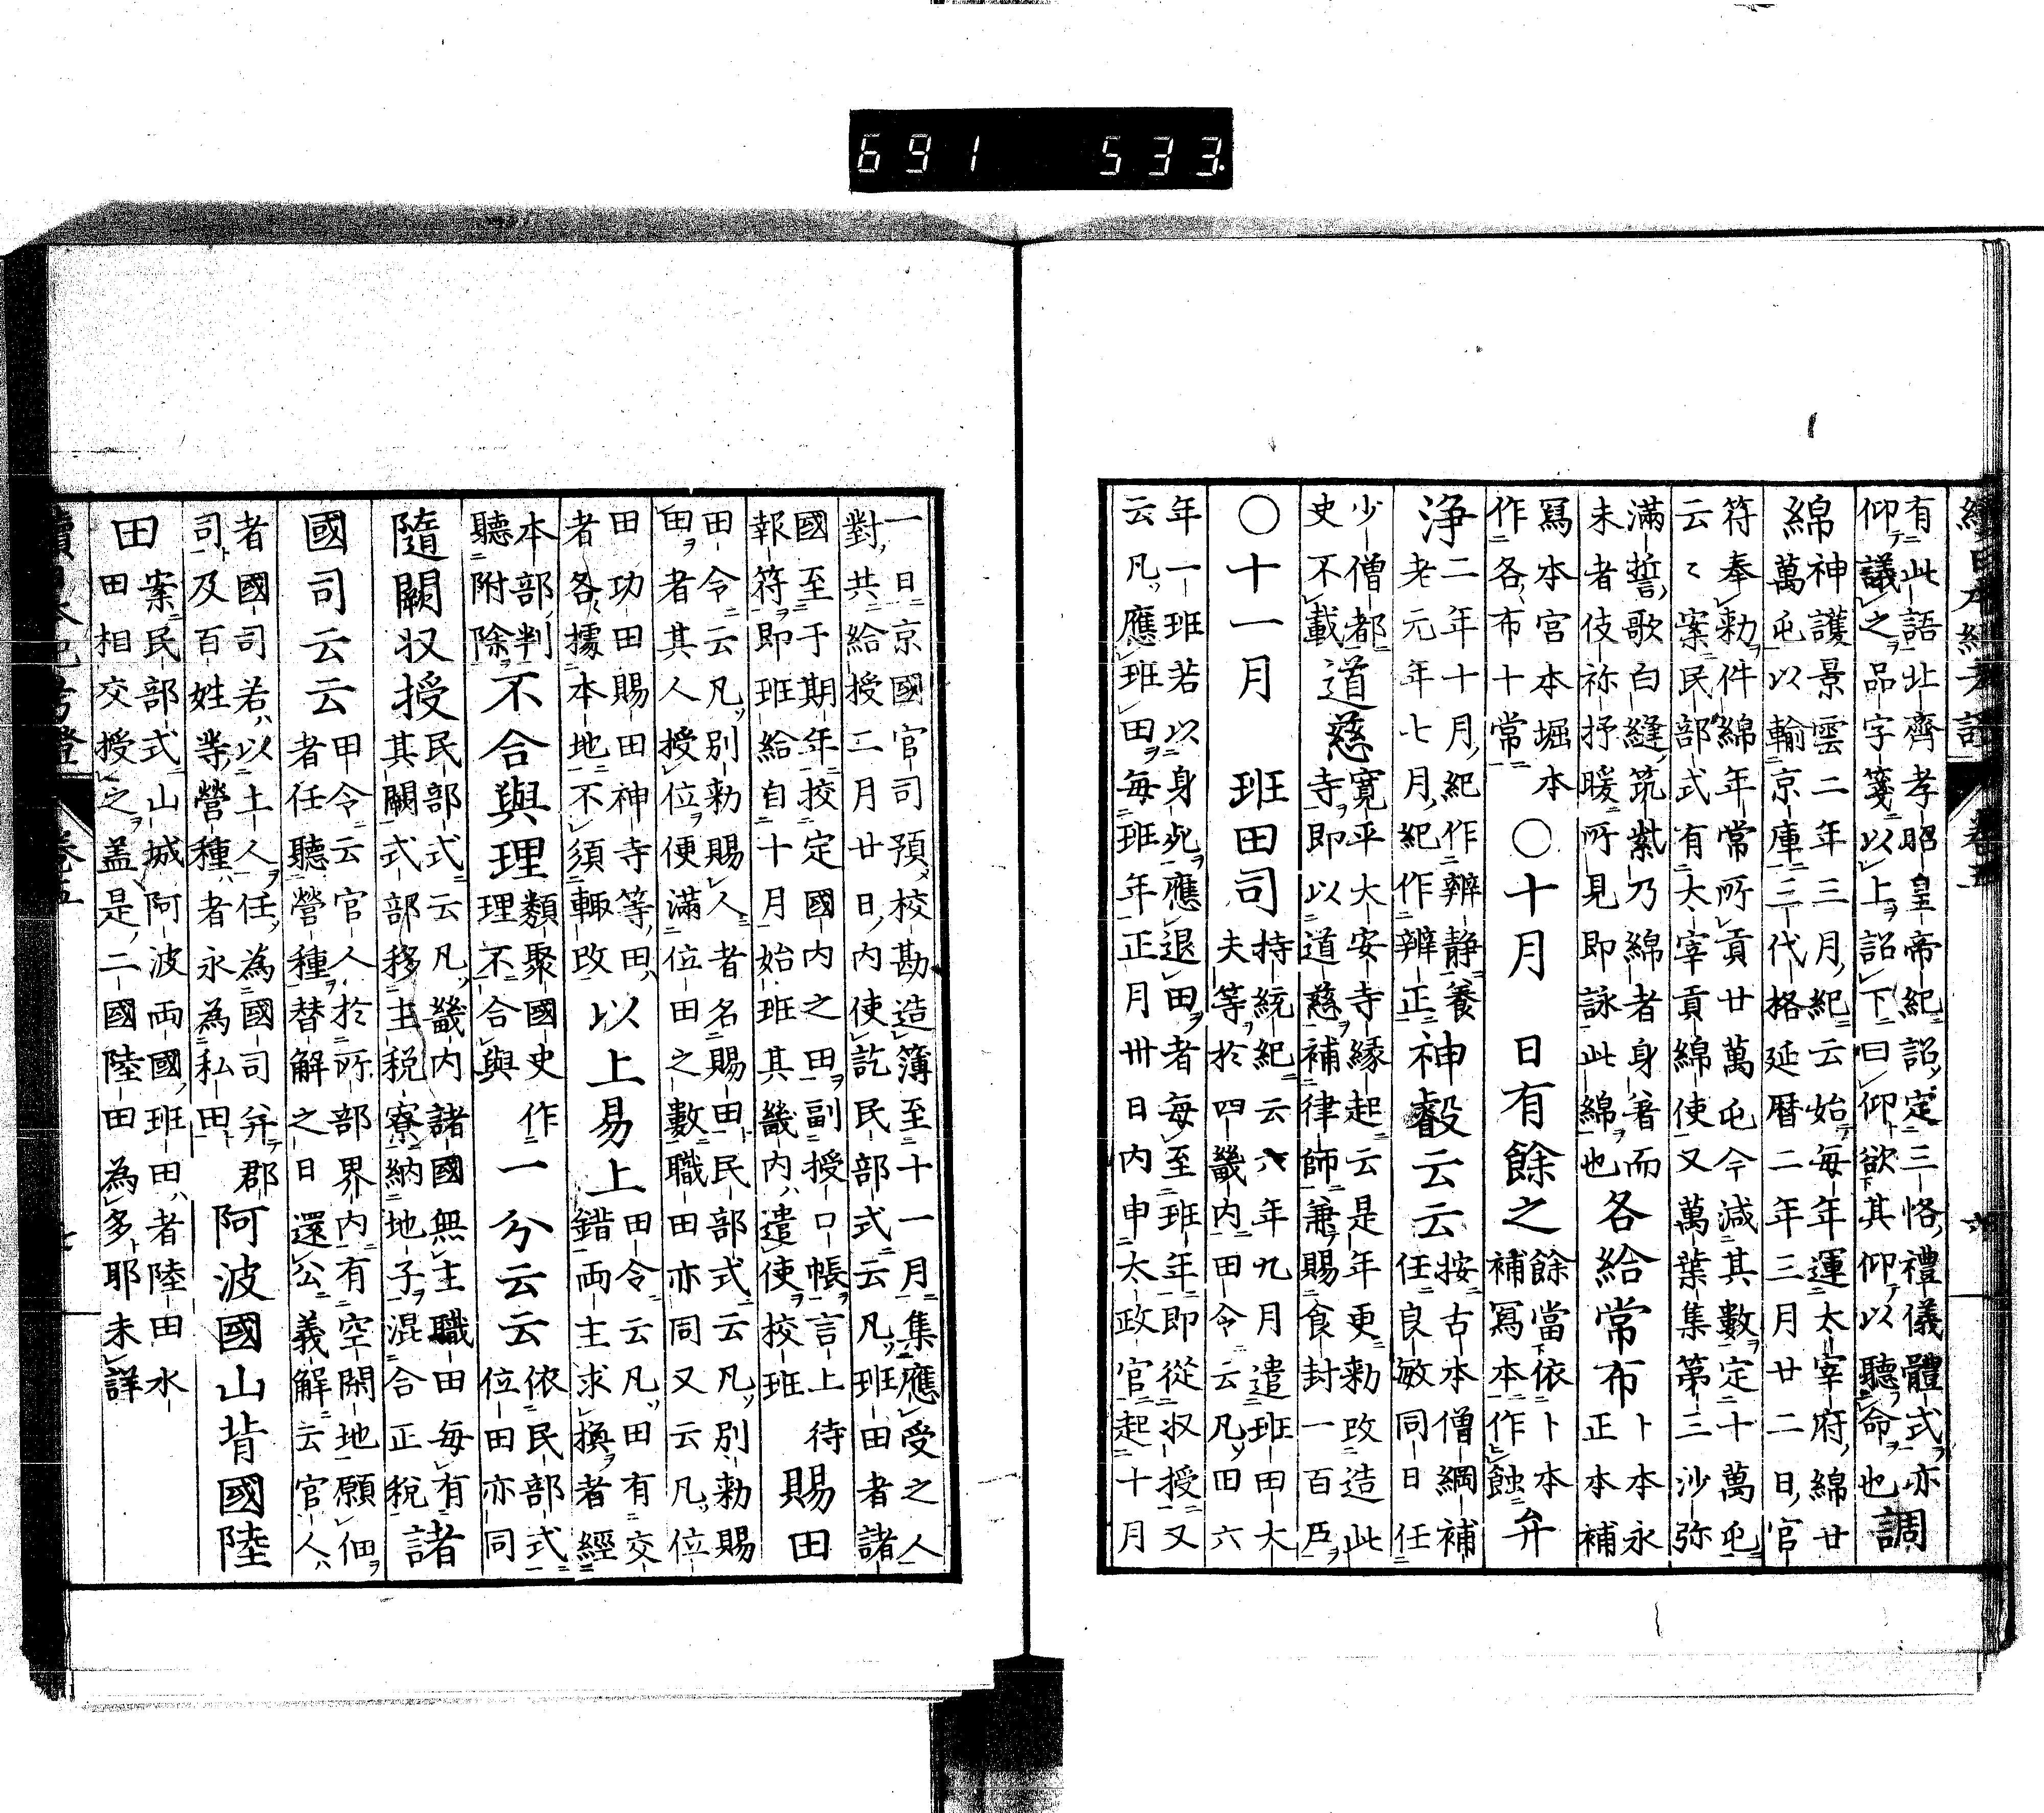 691 533.
續日本紀考證 卷五 六
有此語北齊孝昭皇帝紀詔定三恪禮儀體式亦
仰議之品字箋以上詔下曰仰欲其仰以聽命也調
綿神護景雲二年三月紀云始每年運太宰府綿廿
萬屯以輸京庫三代格延暦二年三月廿二日官
符奉勅件綿年常所貢廿萬屯今減其數定十萬屯
云〻案民部式有太宰貢綿使又萬葉集第三沙弥
滿誓歌白縫筑紫乃綿者身著而
未者伎祢抒暖所見即詠此綿也各給常布卜本永
正本本補
寫本宮本堀本
作各布十常〇十月 日有餘之餘當依卜本
補寫本作蝕弁
浄二年十月紀作辨靜養
老元年七月紀作辨正神叡云云按古本僧綱補
任良敏同日任
少僧都
史不載道慈寛平大安寺緣起云是年更勅改造此
寺即以道慈補律師兼賜食封一百戸
〇十一月 班田司持統紀云六年九月遣班田大
夫等於四畿内田令云凡田六
年一班若以身死應退田者每至班年即從収授又
云凡應班田每班年正月卅日内申太政官起十月
一日京國官司預校勘造簿至十一月集應受之人
對共給授二月廿日内使訖民部式云凡班田者諸
國至于期年校定國内之田副授口帳言上待
報符即班給自十月始班其畿内遣使校班賜田
田令云凡別勅賜人者名賜田民部式云凡別勅賜
田者其人授位便滿位田之數職田亦同又云凡位
田功田賜田神寺等田
者各據本地不須輙改以上易上田令云凡田有交
錯両主求換者經
本部判
聽附除不合與理類聚國史作
理不合與一分云云依民部式
位田亦同
隨闕収授民部式云凡畿内諸國無主職田每有
其闕式部移主税寮納地子混合正税諸
國司云云甲令云官人於所部界内有空閑地願佃
者任聽營種替解之日還公義解云官人
者國司若以土人任為國司并郡
司及百姓業營種者永為私田阿波國山背國陸
田案民部式山城阿波両國班田者陸田水
田相交授之盖是二國陸田為多耶未詳
續日本紀考證 卷五